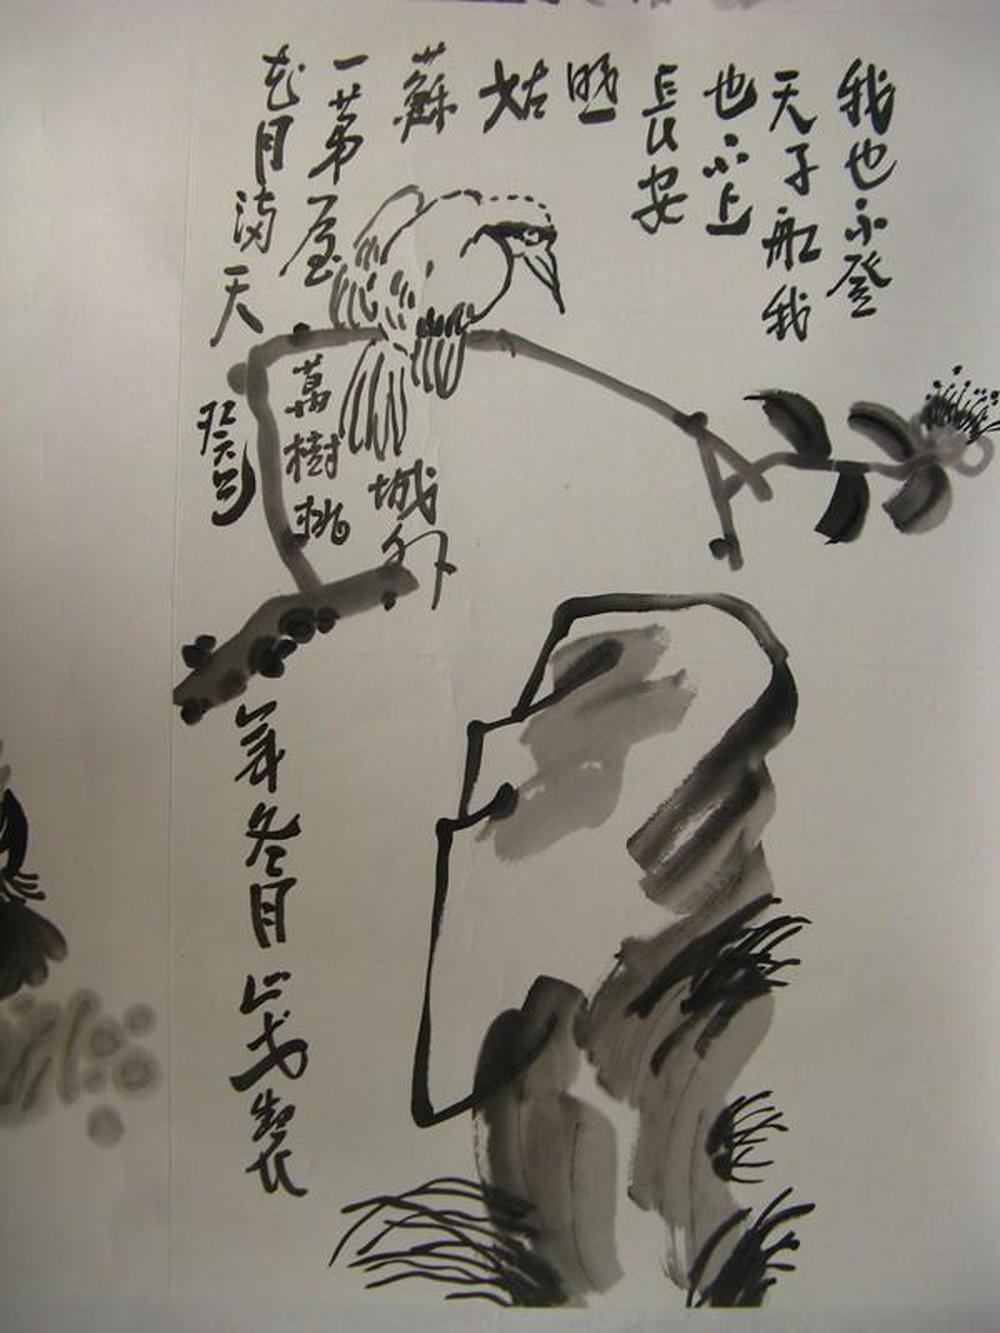 我也不登
天子船我
也不上
長安
眠
姑
蘇城外
一茅屋萬樹桃
花月滿天
癸
年冬月
製